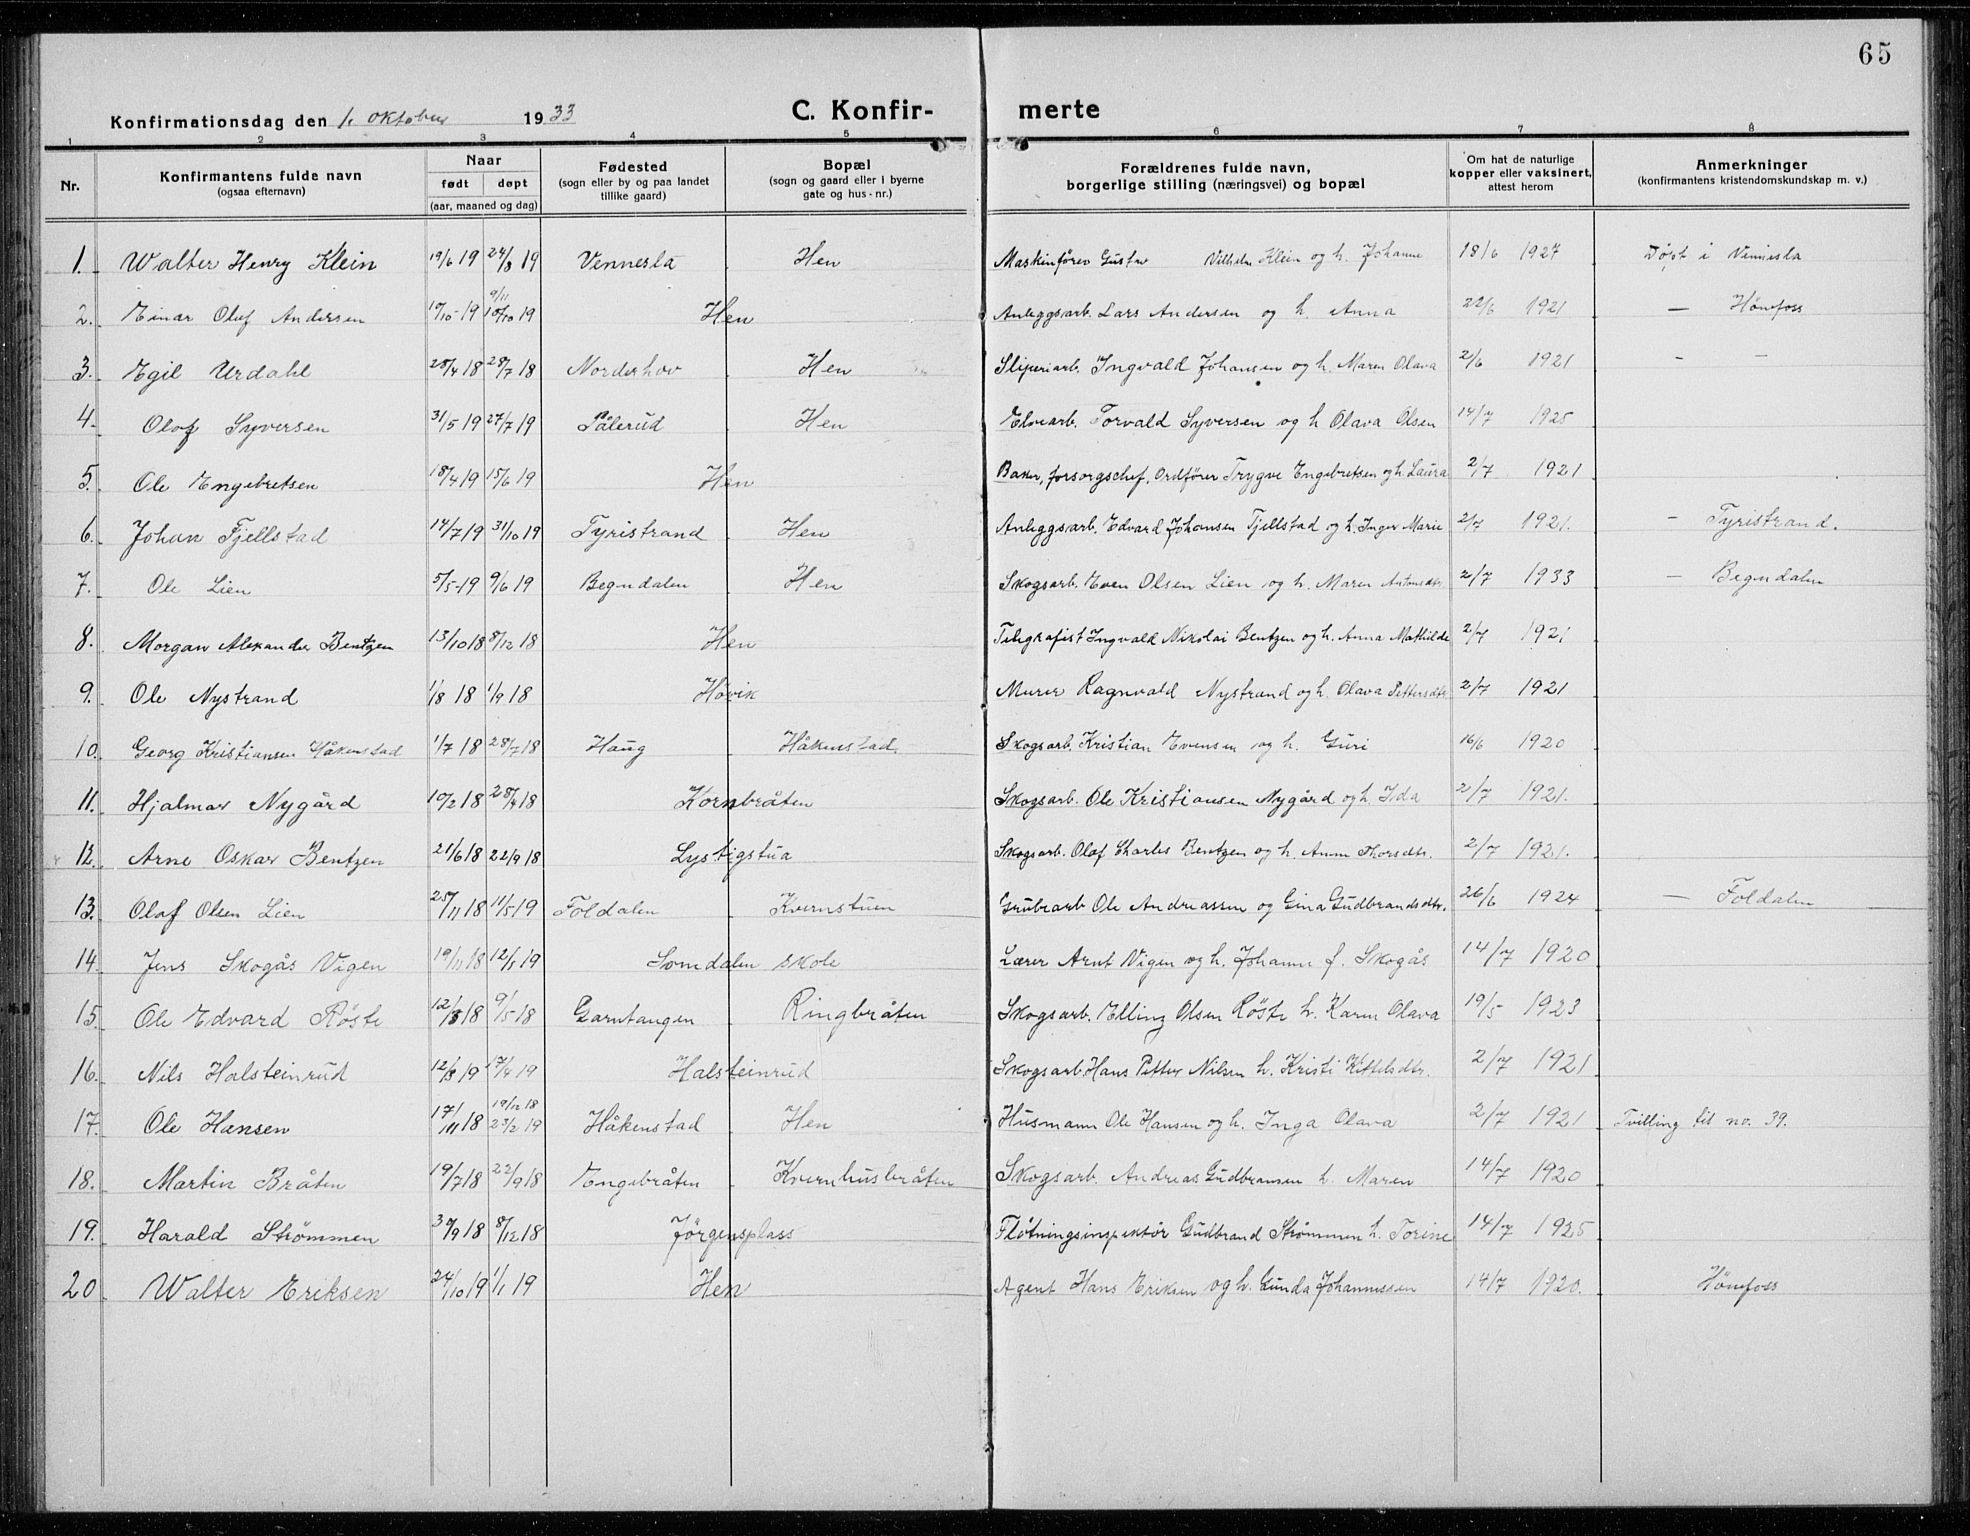 65
Konfirmationsdag den 1. oktober 1933 C. Konfirmerte
1 2 3 4 5 6 7 8
Nr. Konfirmantens fulde navn (ogsaa efternavn) Naar født døpt (aar, maaned og dag) Fødested (sogn eller by og paa landet tillike gaard) Bopæl (sogn og gaard eller i byerne gate og hus-nr.) Forældrenes fulde navn, borgerlige stilling (næringsvei) og bopæl Om hat de naturlige kopper eller vaksinert, attest herom Anmerkninger (konfirmantens kristendomskundskap m. v.)
1. Walter Henry Klein 19/6 19 24/8 19 Vennesla Hen Maskinfører Gustav Vilhelm Klein og h. Johanne 18/6 1927 Døpt i Vennesla
2. Einar Olaf Andersen 10/10-19 9/11 19 Hen Anleggsarb. Lars Andersen og h. Anna 22/6 1921 — Hønefoss
3. Egil Urdahl 28/4 18 28/7 18 Norderhov Hen Sliperiarb. Ingvald Johansen og h. Maren Olava 2/6 1921 - -
4. Olaf Syversen 31/5 19 27/7 19 Pålerud Hen Elvearb. Torvald Syversen og h Olava Olsen 14/7 1925
5. Ole Engebretsen 18/4 19 15/6 19 Hen Baker, forsorgschef, Ordfører Trygve Engebretsen og h. Laura 2/7 1921
6. Johan Fjellstad 14/7 19 31/10 19 Tyristrand Hen Anleggsarb. Edvard Johansen Fjellstad og h. Inger Marie 2/7 1921. - Tyristrand.
7. Ole Lien 5/5-19 9/6 19 Begndalen Hen Skogsarb. Even Olsen Lien og h. Maren Antonsdtr. 2/7 1933 — Begndalen
8. Morgan Alexander Bentzen 13/10 18 8/12 18 Hen Telegrafist Ingvald Nikolai Bentzen og h. Anna Mathilde 2/7 1921
9. Ole Nystrand 1/8 18 1/9 18 Høvik Murer Ragnvald Nystrand og h. Olava Pettersdtr 2/7 1921
10. Georg Kristiansen Håkenstad 1/7 18 28/7 18 Haug Håkenstad Skogsarb. Kristian Evensen og h. Guri 16/6 1920
11. Hjalmar Nygård 10/2 18 28/4 18 Kornbråten Skogsarb. Ole Kristiansen Nygård og h. Ida 2/7 1921.
12. Arne Oskar Bentzen 21/6 18 22/9 18 Lystigstua Skogsarb. Olaf Charles Bentzen og h. Anna Thorsdtr. 2/7 1921.
13. Olaf Olsen Lien 25/11 18 11/5 19 Foldalen Kvernstuen Grubearb Ole Andreassen og Gina Gudbrandsdtr. 26/6 1924 — Foldalen
14. Jens Skogås Vigen 19/11 18 12/1 19 Somdalen skole Lærer Arnt Vigen og h. Johanne f. Skogås 14/7 1920
15. Ole Edvard Røste 12/3 18 9/5 18 Garntangen Ringbråten Skogsarb. Elling Olsen Røste h. Karen Olava 19/5 1923
16. Nils Halsteinrud 12/3 19 17/4 19 Halsteinrud Skogsarb. Hans Petter Nilsen h. Kristi Kittelsdtr. 2/7 1921
17. Ole Hansen 17/11 18 19/12 18 23/2 19 Håkenstad Hen Husmann Ole Hansen og h. Inga Olava 2/7 1921 Tvilling til no. 39.
18. Martin Bråten 19/7 18 22/9 18 Engebråten Kvernhusbråten Skogsarb. Andreas Gudbransen h. Maren 14/7 1920
19. Harald Strømmen 30/9 18 8/12 18 Jörgensplass Fløtningsinspektør Gudbrand Strømmen h. Torine 14/7 1925
20 Walter Eriksen 24/10 19 1/1 19 Hen Agent Hans Eriksen og h. Gunda Johannessen 14/7 1920. Hønefoss